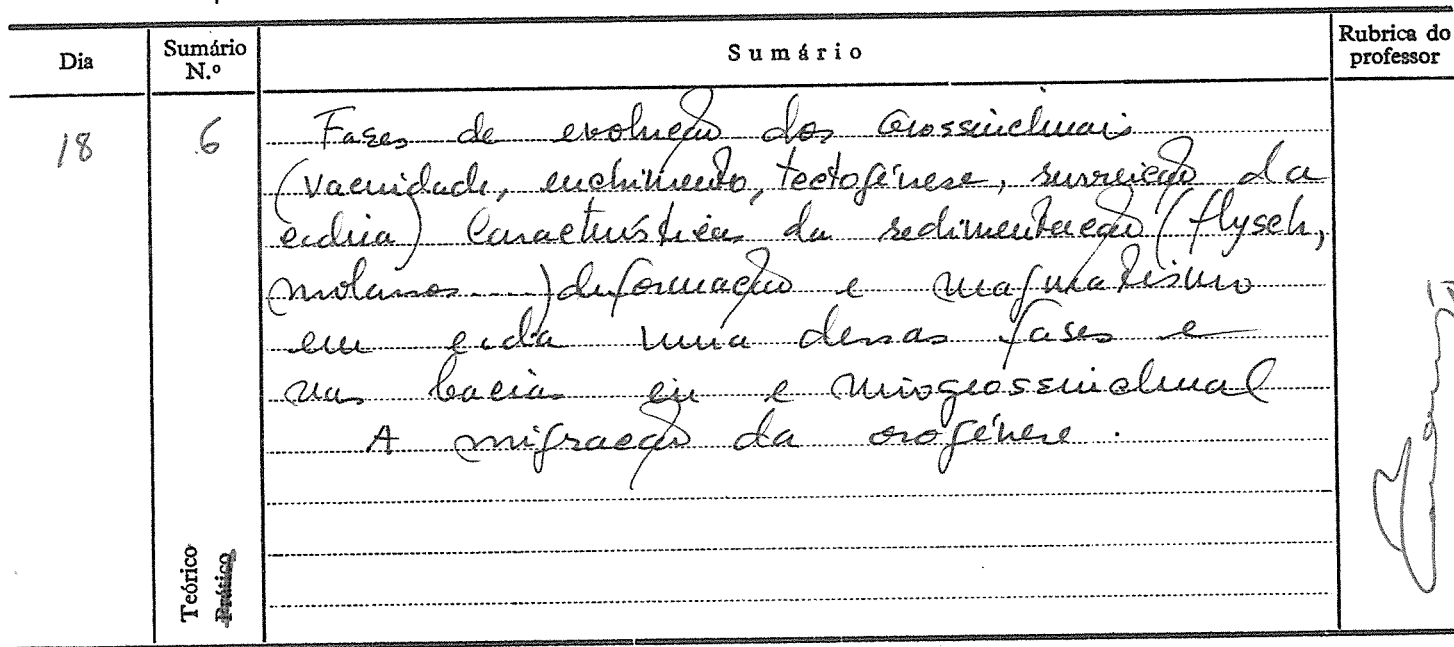 Dia
Sumário N.º
Sumário
Rubrica do professor
18
6
Fases de evolução dos Geossinclinais
(vacuidade, enchimento, tectogénese, surreição da
cadeia) Características da sedimentação (flysch,
molassos...) deformação e magmatismo
em cada uma dessas fases e
nas bacias eu e miogeossinclinal
A migração da orogénese.
Teórico
Prático